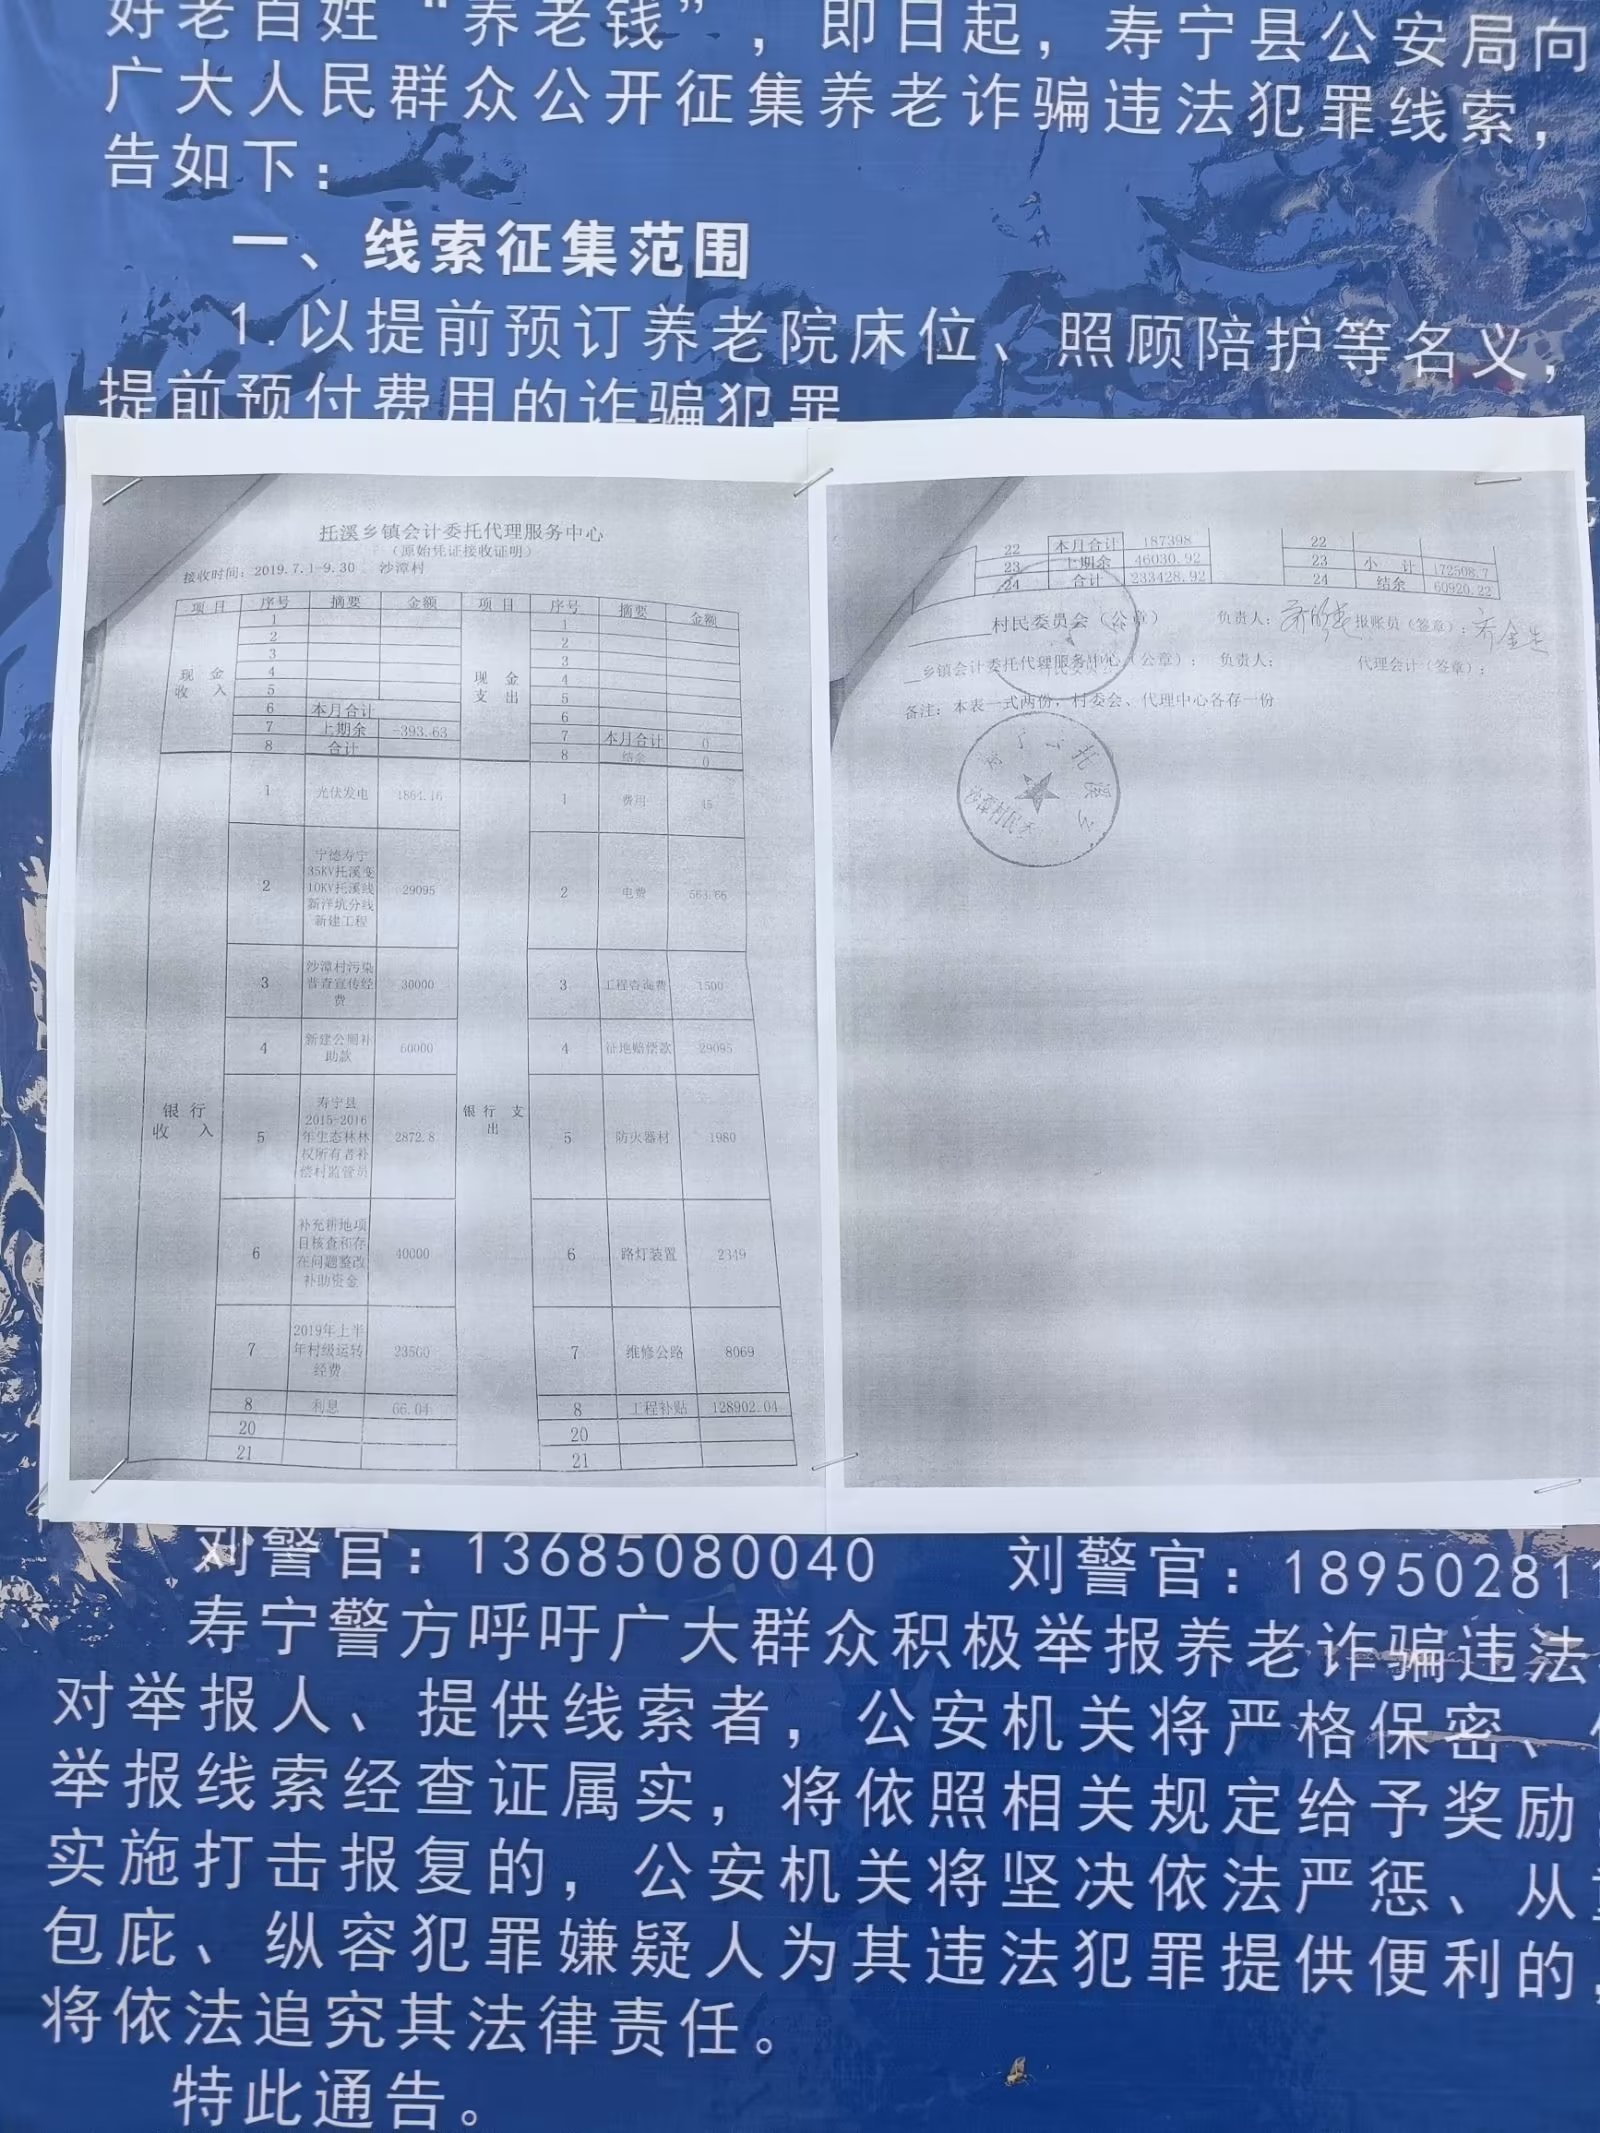 好老百姓“养老钱”，即日起，寿宁县公安局向
广大人民群众公开征集养老诈骗违法犯罪线索，
告如下：
一、线索征集范围
1.以提前预订养老院床位、照顾陪护等名义，
提前预付费用的诈骗犯罪
托溪乡镇会计委托代理服务中心
（原始凭证接收证明）
接收时间：2019.7.1-9.30 沙潭村
项 目 序号 摘要 金额 项 目 序号 摘要 金额
现 金 收 入 现 金 支 出
1 1
2 2
3 3
4 4
5 5
6 本月合计 6
7 上期余 -393.63 7 本月合计 0
8 合计 8 结余 0
银 行 收 入 银 行 支 出
1 光伏发电 1864.16 1 费用 45
2 宁德寿宁
35KV托溪变
10KV托溪线
新洋坑分线
新建工程 29095 2 电费 563.66
3 沙潭村污染
普查宣传经
费 30000 3 工程咨询费 1500
4 新建公厕补
助款 60000 4 征地赔偿款 29095
5 寿宁县
2015-2016
年生态林林
权所有者补
偿村监管员 2872.8 5 防火器材 1980
6 补充耕地项
目核查和存
在问题整改
补助资金 40000 6 路灯装置 2349
7 2019年上半
年村级运转
经费 23500 7 维修公路 8069
8 利息 66.04 8 工程补贴 128902.04
20 20
21 21
22 本月合计 187398 22
23 上期余 46030.92 23 小 计 172508.7
24 合计 233428.92 24 结余 60920.22
村民委员会（公章） 负责人： 报账员（签章）：
乡镇会计委托代理服务中心（公章）； 负责人； 代理会计（签章）；
备注：本表一式两份，村委会、代理中心各存一份
托溪
沙潭村民
刘警官：13685080040 刘警官：189502811
寿宁警方呼吁广大群众积极举报养老诈骗违法
对举报人、提供线索者，公安机关将严格保密、
举报线索经查证属实，将依照相关规定给予奖励
实施打击报复的，公安机关将坚决依法严惩、从
包庇、纵容犯罪嫌疑人为其违法犯罪提供便利的，
将依法追究其法律责任。
特此通告。